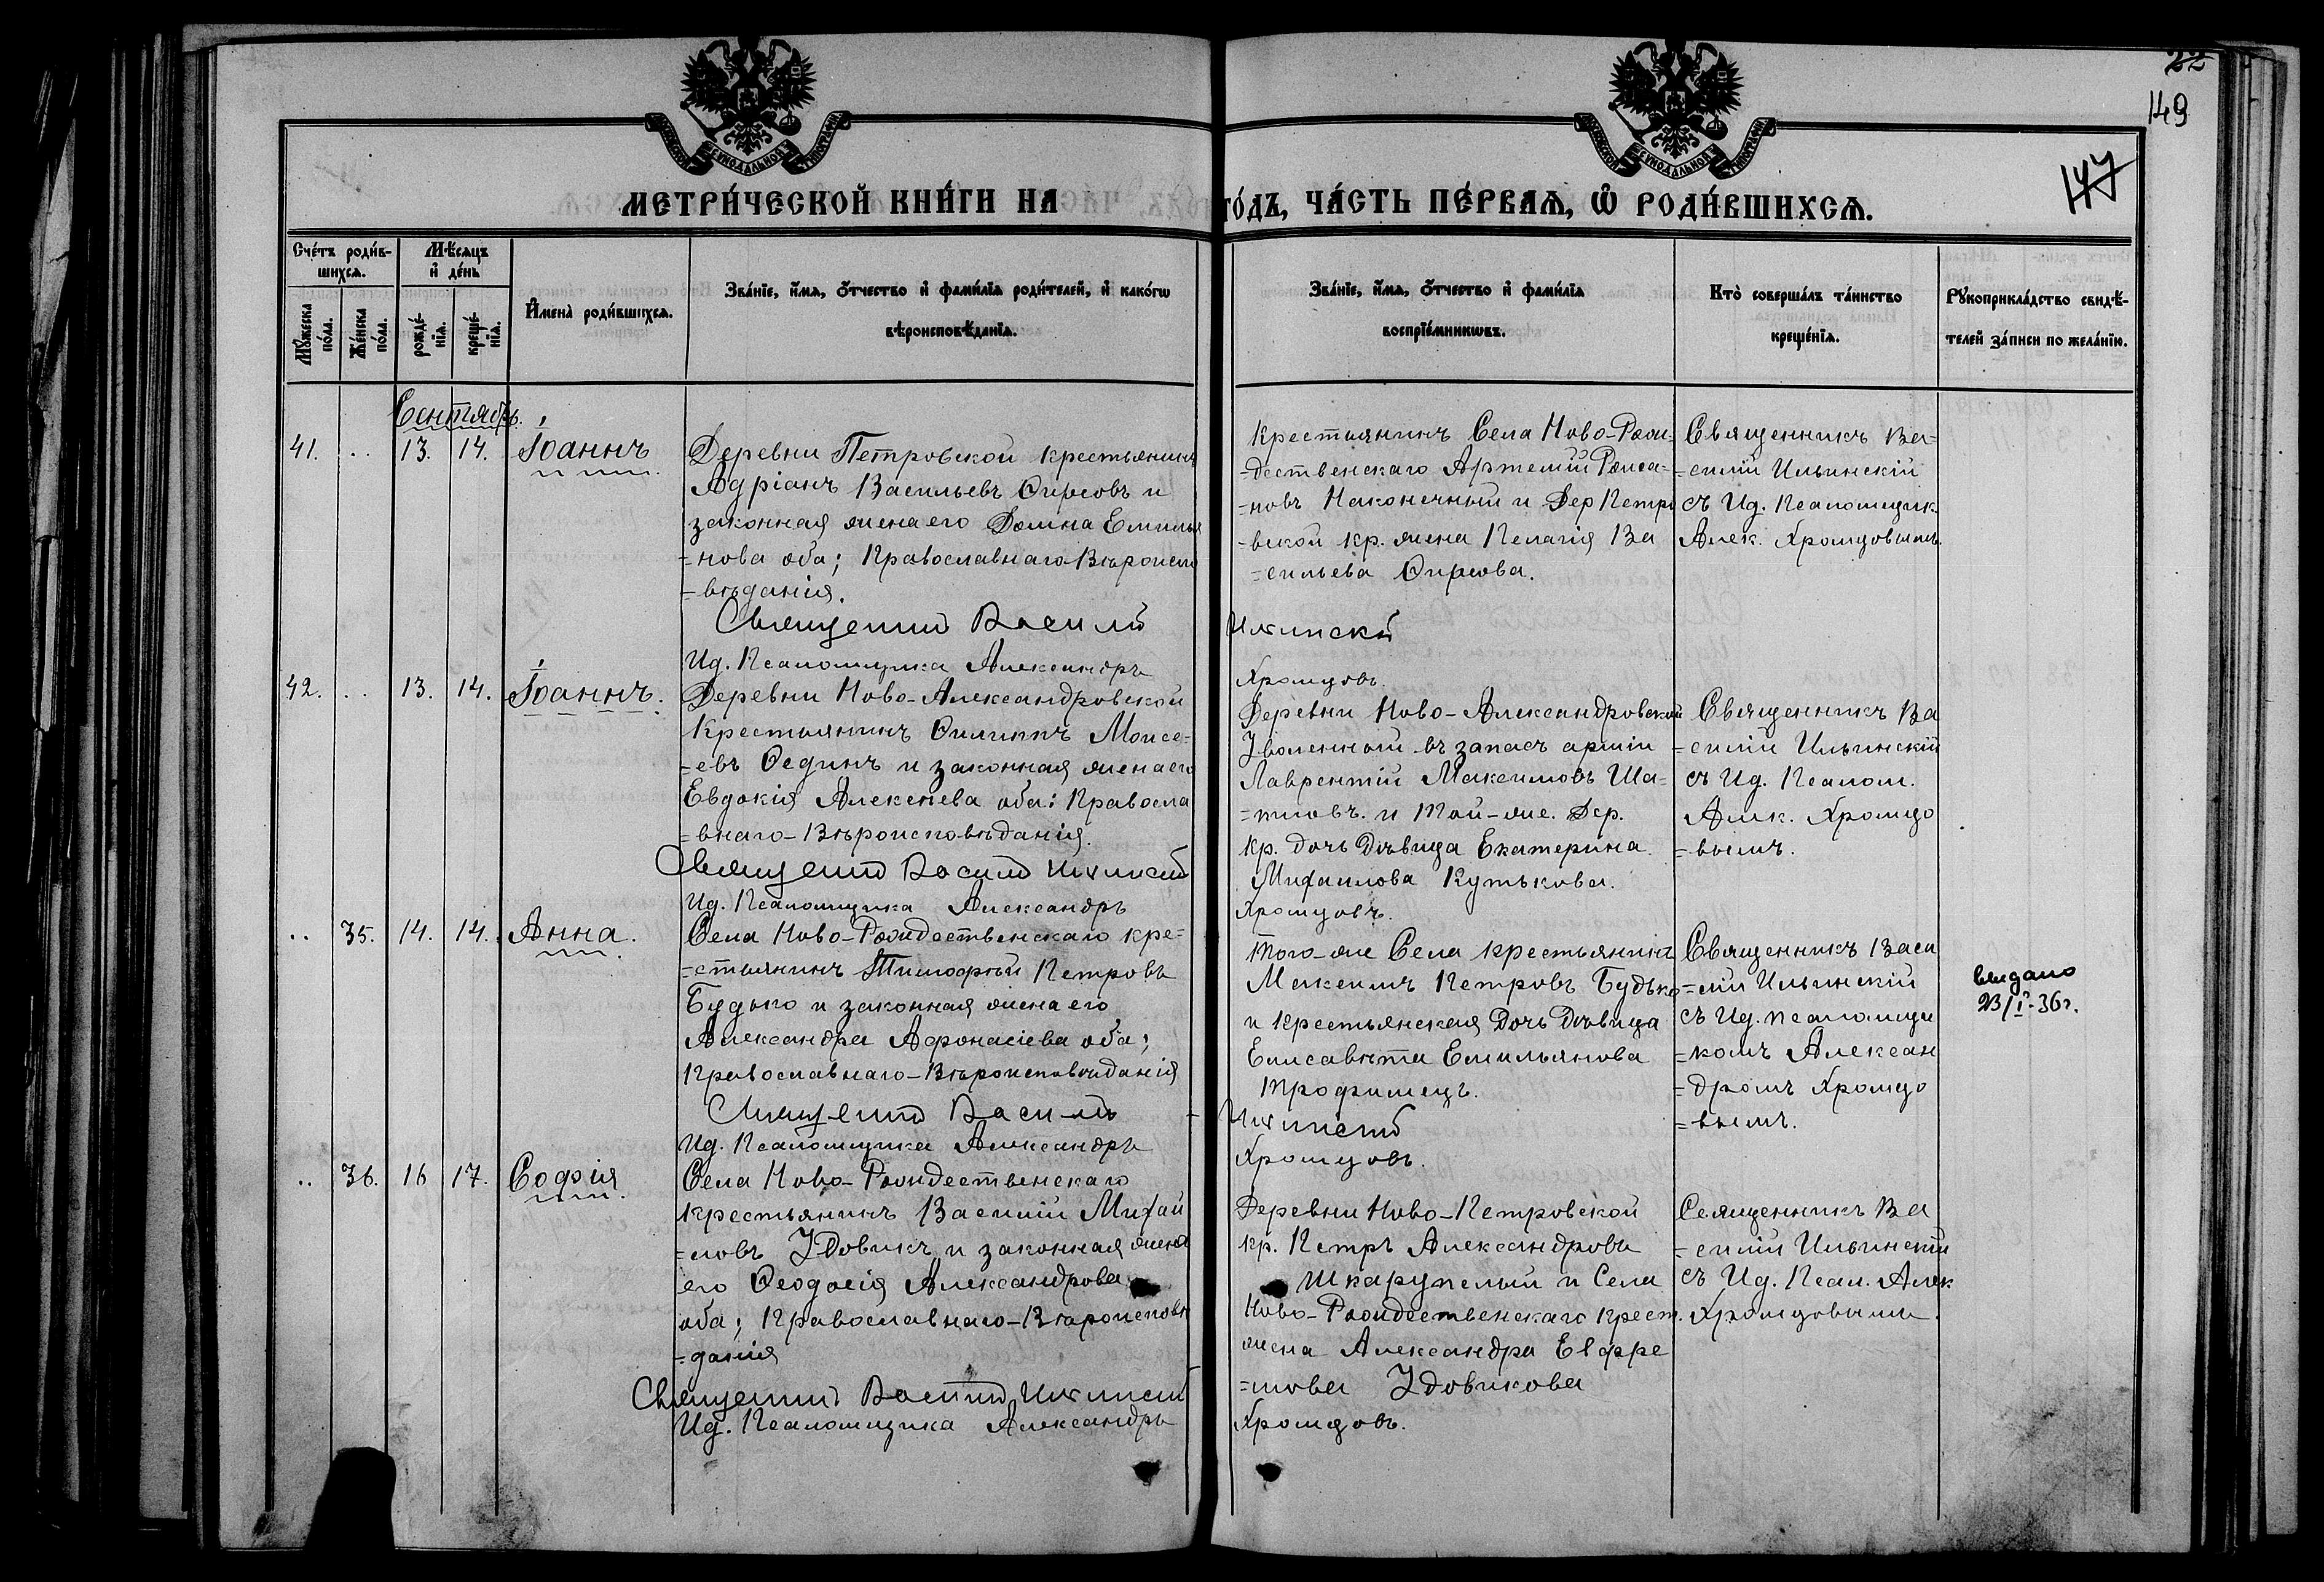 22
149
147
МОСКОВСКОЙ СѴНОДАЛЬНОЙ ТИПОГРАФІИ
МОСКОВСКОЙ СѴНОДАЛЬНОЙ ТИПОГРАФІИ
МЕТРИ́ЧЕСКОЙ КНИ́ГИ НА
ГО́ДЪ, ЧА́СТЬ ПЕ́РВАѦ, Ѡ҆ РОДИ́ВШИХСѦ.
Сче́тъ роди́в-
шихсѧ.
Мꙋ́жеска по́ла.
Же́нска по́ла.
Мѣ́сѧцъ и҆ де́нь
рожде́-нїѧ.
креще́-нїѧ.
И҆мена̀ роди́вшихсѧ.
Зва́нїе, и҆́мѧ, ѻ҆́тчество и҆ фами́лїѧ роди́телей, и҆ како́гѡ
вѣроисповѣ́данїѧ.
Зва́нїе, и҆́мѧ, ѻ҆́тчество и҆ фами́лїѧ
воспрїе́мникѡвъ.
Кто̀ соверша́лъ та́инство
креще́нїѧ.
Рꙋкоприкла́дство свидѣ́-
телей за́писи по жела́нїю.
Сентябрь.
41. .. 13. 14. Іоаннъ
Деревни Петровской крестьянинъ
Адріанъ Васильевъ Ѳирсовъ и
законная жена его Домна Емилья
=нова оба; Православнаго-Вѣроиспо
=вѣданія.
Священникъ Василій
Ид. Псаломщика Александръ
Крестьянинъ Села Ново-Рож-
=дественскаго Артемій Рома-
=новъ Наконечный и Дер Петро
=вской кр. жена Пелагія Ва
=сильева Ѳирсова.
Ильинскій
Хромцовъ.
Священникъ Ва-
=силій Ильинскій
съ Ид. Псаломщик.
Алек. Хромцовымъ.
42. .. 13. 14. Іоаннъ.
Деревни Ново-Александровской
Крестьянинъ Филиппъ Моисе-
=евъ Ѳединъ и законная жена его
Евдокія Алексѣева оба: Правосла
=внаго-Вѣроисповѣданія.
Священникъ Василій Ильинскій
Ид. Псаломщика Александръ
Деревни Ново-Александровской
Уволенный въ запасъ арміи
Лаврентій Максимовъ Ша-
=тловъ. и Той-же. Дер.
Кр. дочь Дѣвица Екатерина
Михаилова Кутькова.
Хромцовъ.
Священникъ Ва
=силій Ильинскій
съ Ид. Псалом.
Алек. Хромцо
=вымъ.
.. 35. 14. 14. Анна.
Села Ново-Рождественскаго кре=
=стьянинъ Тимофѣй Петровъ
Будько и законная жена его
Александра Афонасіева оба;
Православнаго-Вѣроисповѣданія
Священникъ Василій
Ид. Псаломщика Александръ
Того-же Села крестьянинъ
Максимъ Петровъ Будько
и крестьянская Дочь Дѣвица
Елисавета Емильянова
Трофимецъ.
Ильинскій
Хромцовъ.
Священникъ Васи
=лій Ильинскій
съ Ид. псаломщи
=комъ Алексан
=дромъ Хромцо
=вымъ.
выдано
23/I-36г.
.. 36. 16 17. Софія
Села Ново-Рождественскаго
крестьянинъ Василій Михай
=ловъ Удовикъ и законная жена
его Ѳеодосія Александрова
оба; Православнаго-Вѣроисповѣ
=данія
Священникъ Василій Ильинскій
Ид. Псаломщика Александръ
Деревни Ново-Петровской
кр. Петръ Александровъ
Шкарупелый и Села
Ново-Рождественскаго крест.
жена Александра Евфре
=мова Удовикова
Хромцовъ.
Священникъ Ва
=силій Ильинскій
съ Ид. Псал. Алек
Хромцовымъ.